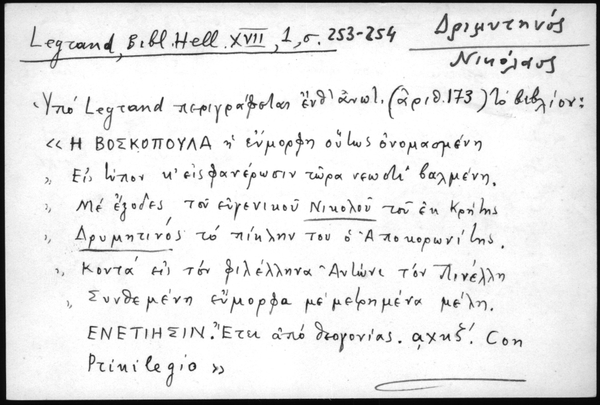 Legrand, Bibl. Hell. XVII, 1, σ. 253-254
Δριμυτηνός
Νικόλαος
Ὑπό Legrand περιγράφεται ἔνθ' ἀνωτ. (ἀριθ. 173) τό βιβλίον:
« Η ΒΟΣΚΟΠΟΥΛΑ ἡ εὔμορφη οὕτως ὀνομασμένη
» Εἰς τύπον κ' εἰς φανέρωσιν τώρα νεωστί βαλμένη.
» Μέ ἔξοδες τοῦ εὐγενικοῦ Νικολοῦ τοῦ ἐκ Κρήτης
» Δρυμητινός τό πίκλην του ὁ Ἀποκορωνίτης.
» Κοντά εἰς τόν φιλέλληνα Ἀντώνι τόν Πινέλλη
» Συνθεμένη εὔμορφα μέ μετρημένα μέλη.
ΕΝΕΤΙΗΣΙΝ. Ἔτει ἀπό θεογονίας. αχκξ΄. Con
Privilegio »